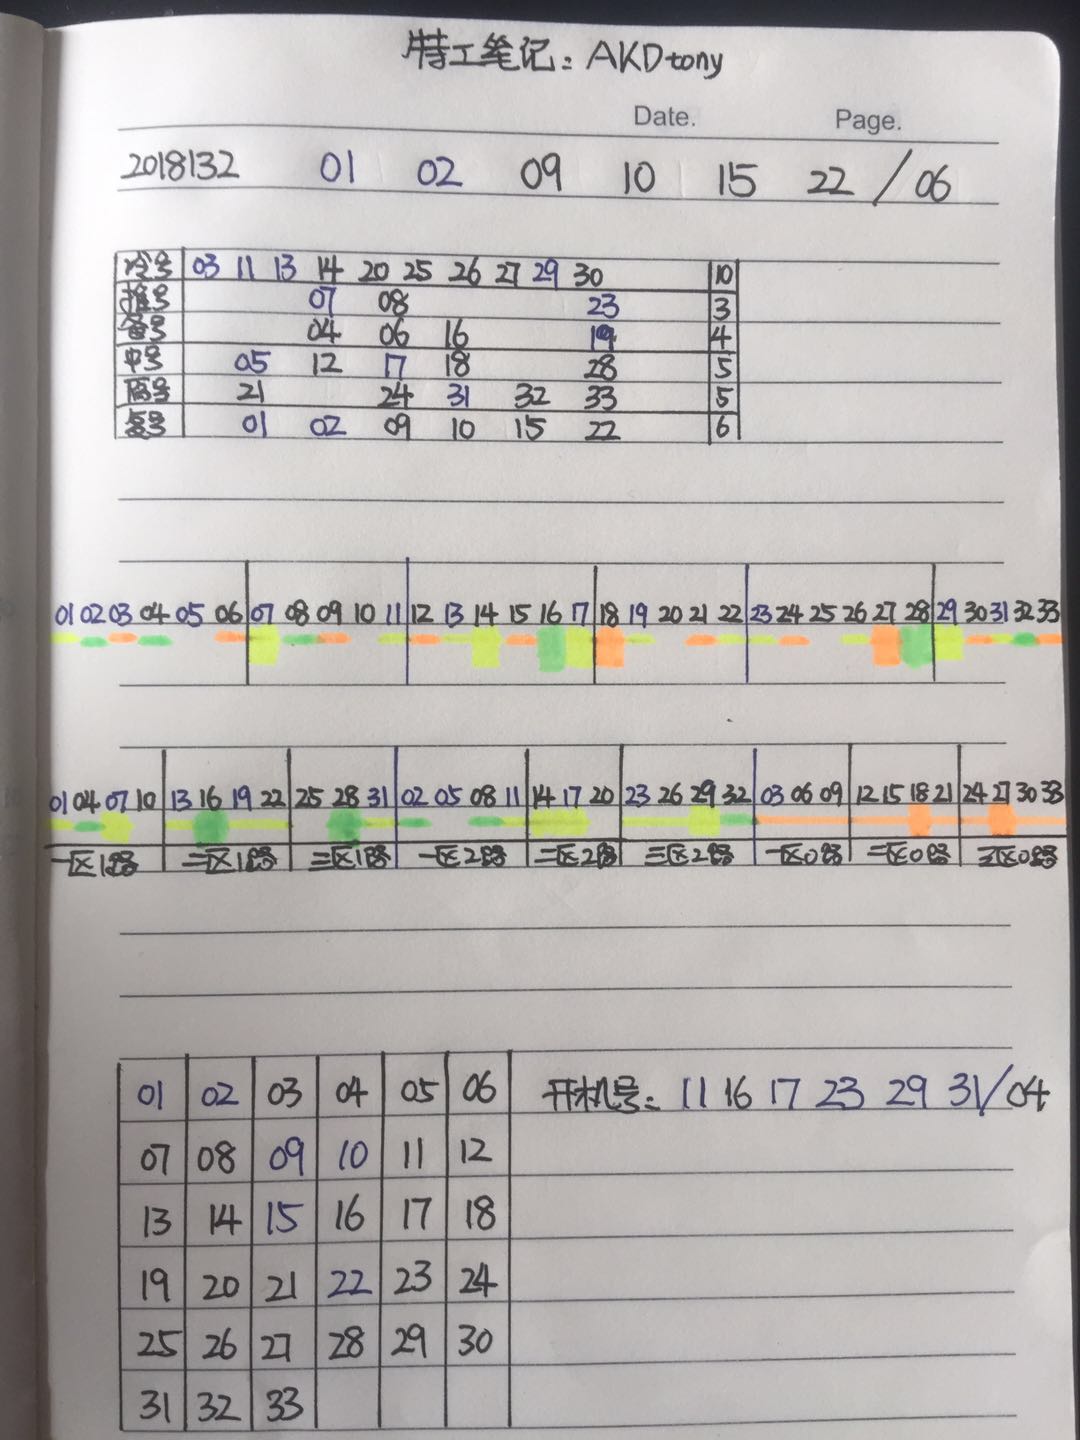 特工笔记：AKDtony
Date. Page.
2018132 01 02 09 10 15 22 / 06
冷号 03 11 13 14 20 25 26 27 29 30 10
推号 07 08 23 3
备号 04 06 16 19 4
中号 05 12 17 18 28 5
隔号 21 24 31 32 33 5
复号 01 02 09 10 15 22 6
01 02 03 04 05 06 07 08 09 10 11 12 13 14 15 16 17 18 19 20 21 22 23 24 25 26 27 28 29 30 31 32 33
01 04 07 10 13 16 19 22 25 28 31 02 05 08 11 14 17 20 23 26 29 32 03 06 09 12 15 18 21 24 27 30 33
一区1路 二区1路 三区1路 一区2路 二区2路 三区2路 一区0路 二区0路 三区0路
01 02 03 04 05 06 开机号：11 16 17 23 29 31/04
07 08 09 10 11 12
13 14 15 16 17 18
19 20 21 22 23 24
25 26 27 28 29 30
31 32 33